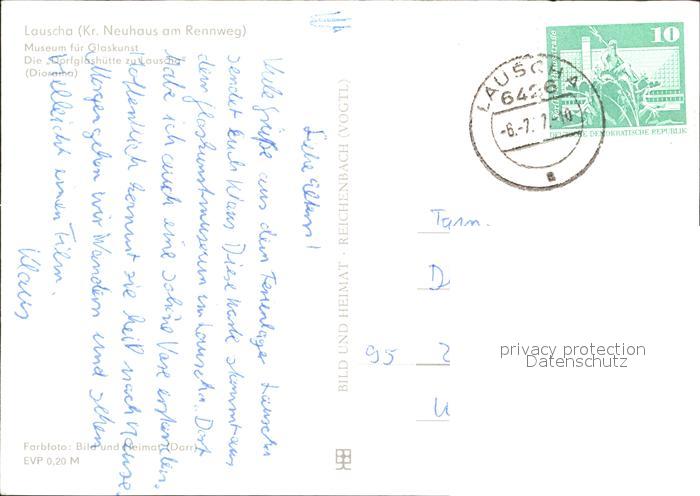 Lauscha (Kr. Neuhaus am Rennweg)
Museum für Glaskunst
Die "Dorfglashütte zu Lauscha"
(Diorama)
Liebe Eltern!
Viele Grüße aus dem Ferienlager Lauscha
sendet Euch Klaus. Diese Karte stammt aus
dem Glaskunstmuseum in Lauscha. Dort
habe ich auch eine schöne Vase erstanden.
Hoffentlich kommt sie heil nach Hause.
Morgen gehen wir Wandern und sehen
vielleicht einen Film.
Klaus
Farbfoto: Bild und Heimat (Darr)
EVP 0,20 M
BILD UND HEIMAT · REICHENBACH (VOGTL)
LAUSCHA
6426
-6.-7.7 -10
a
10
DEUTSCHE DEMOKRATISCHE REPUBLIK
Fam.
D
95 Z
privacy protection
Datenschutz